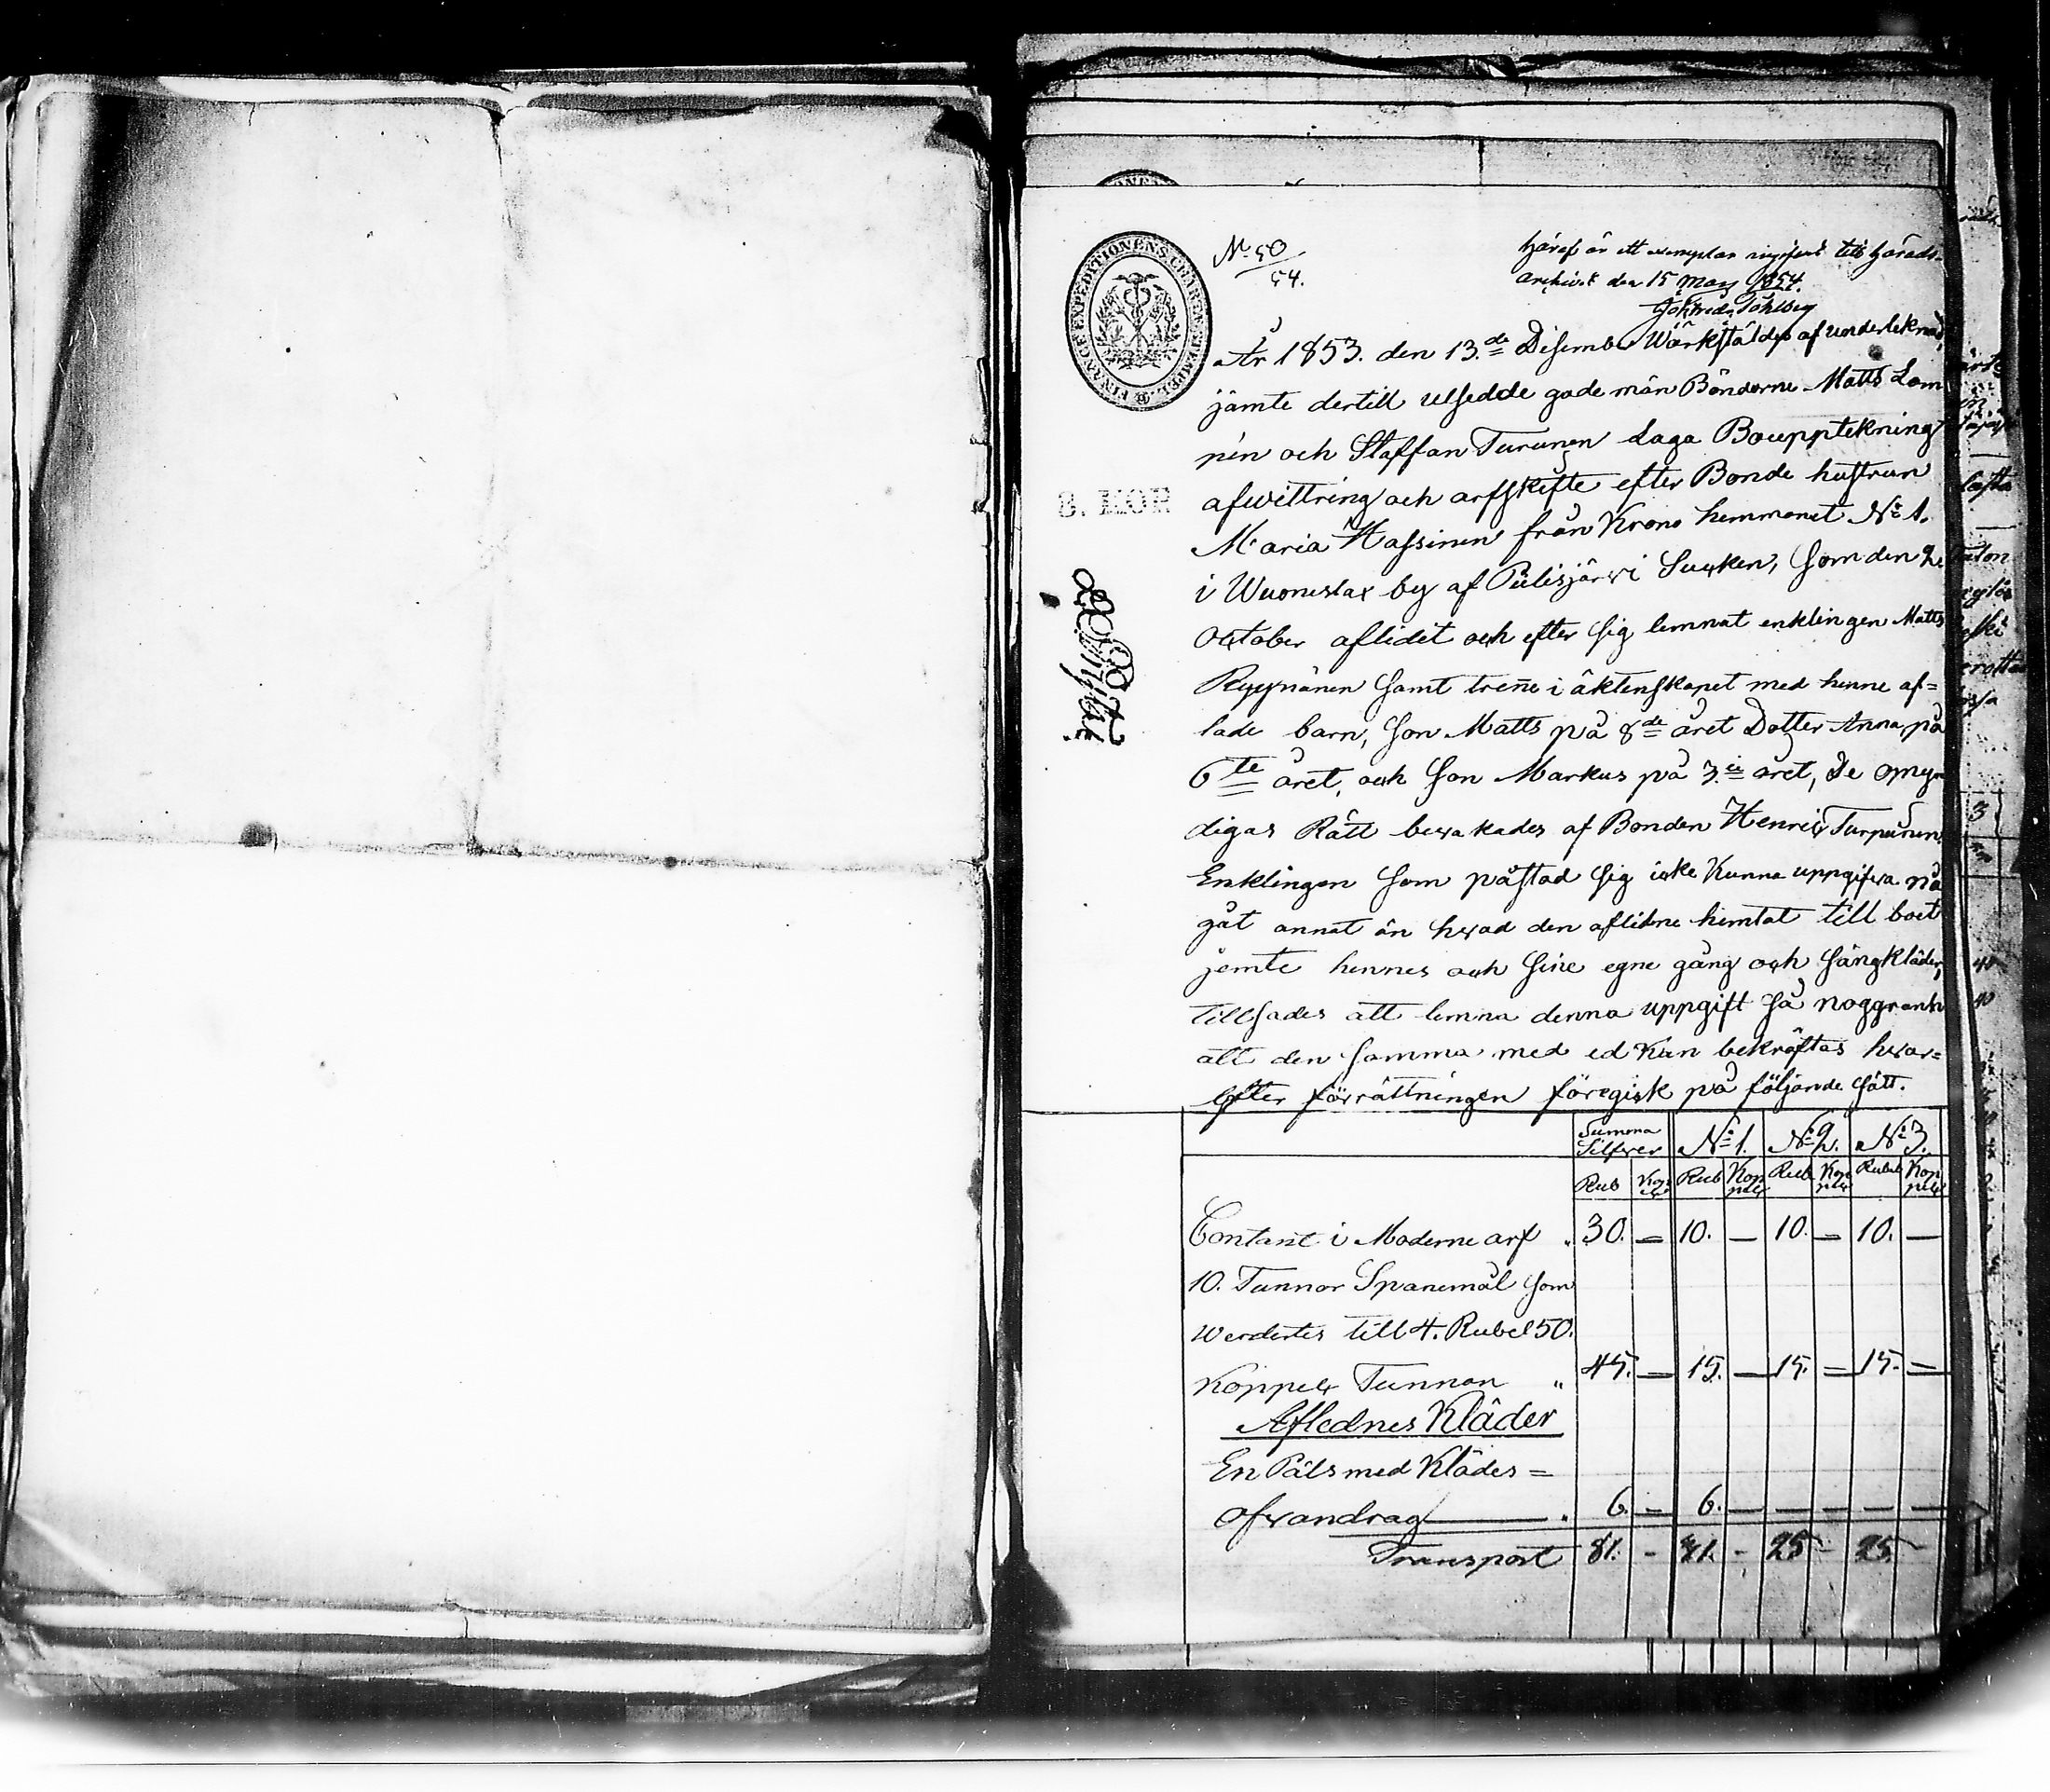 FINANCE EXPEDITIONENS CHARTÆ STEMPEL.
No 50
54.
Häraf är ett exemplar ingifvet till Härads-
archivet den 15 Mars 1854.
År 1853. den 13.de Disember Wärkstäldes af underteknad,
jämte dertill utsedde gode män Bönderne Matts Lam
pin och Staffan Turunen Laga Bouppteknings
afwittring och arfskifte efter Bonde hustrun
Maria Hassinen från Krono hemmanet No 1.
i Wuonislax by af Pielisjärwi Sucken, som den 2
October aflidit och efter sig lemnat enklingen Matts
Ryynänen samt trene i äktenskapet med henne af=
lade barn, son Matts på 8de året Dotter Anna, på
6te året, och son Markus på 3ie året, De omyn
digas Rätt bevakades af Bonden Henric Turpeinen
Enklingen som påstod sig icke Kunna uppgifva nå
gåt annat än hvad den aflidne hemtat till boet
jemte hennes och sine egne gång och sängkläder,
tillsades att lemna denna uppgift så noggrant
att den samma med ed Kan bekräftas hvar=
efter förrättningen föregick på följande sätt.
Summa Silfver No 1. No 2. No 3.
Rub Kop Rub Kop Rub Kop Rub Kop
Contant i Moderne arf 30. — 10. — 10. — 10. —
10. Tunnor Spanemål som
werdertes till 4. Rubel 50.
Koppek Tunnan " 45. — 15. — 15. — 15. —
Aflednes Kläder
En Päls med Klädes=
ofvandrag 6. — 6. — — — — —
Transport 81. - 31. - 25 - 25 -